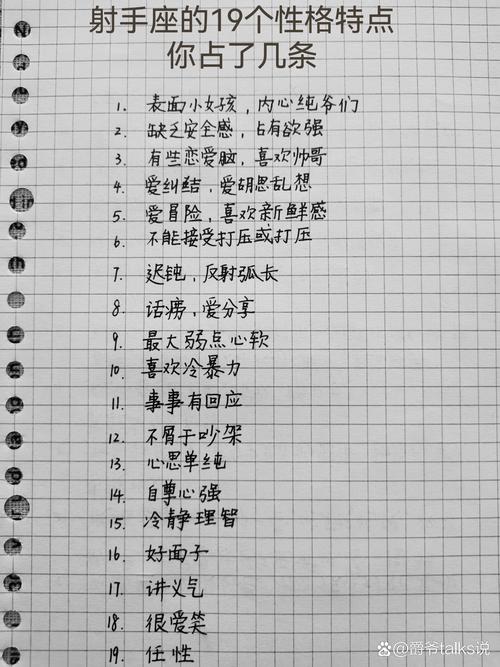 射手座的19个性格特点
你占了几条
1. 表面小女孩，内心纯爷们
2. 缺乏安全感，占有欲强
3. 有些恋爱脑，喜欢帅哥
4. 爱纠结，爱胡思乱想
5. 爱冒险，喜欢新鲜感
6. 不能接受打压或打压
7. 迟钝，反射弧长
8. 话痨，爱分享
9. 最大弱点心软
10. 喜欢冷暴力
11. 事事有回应
12. 不屑于吵架
13. 心思单纯
14. 自尊心强
15. 冷静理智
16. 好面子
17. 讲义气
18. 很爱笑
19. 任性
爵爷talks说